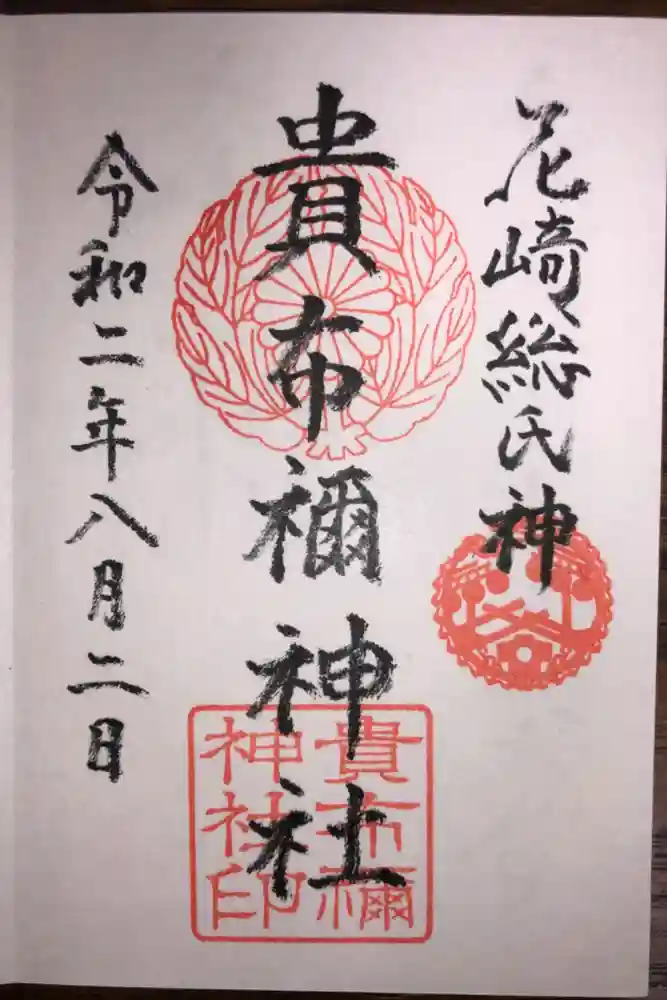 尼崎総氏神
貴布禰神社
貴布禰
神社印
令和二年八月二日